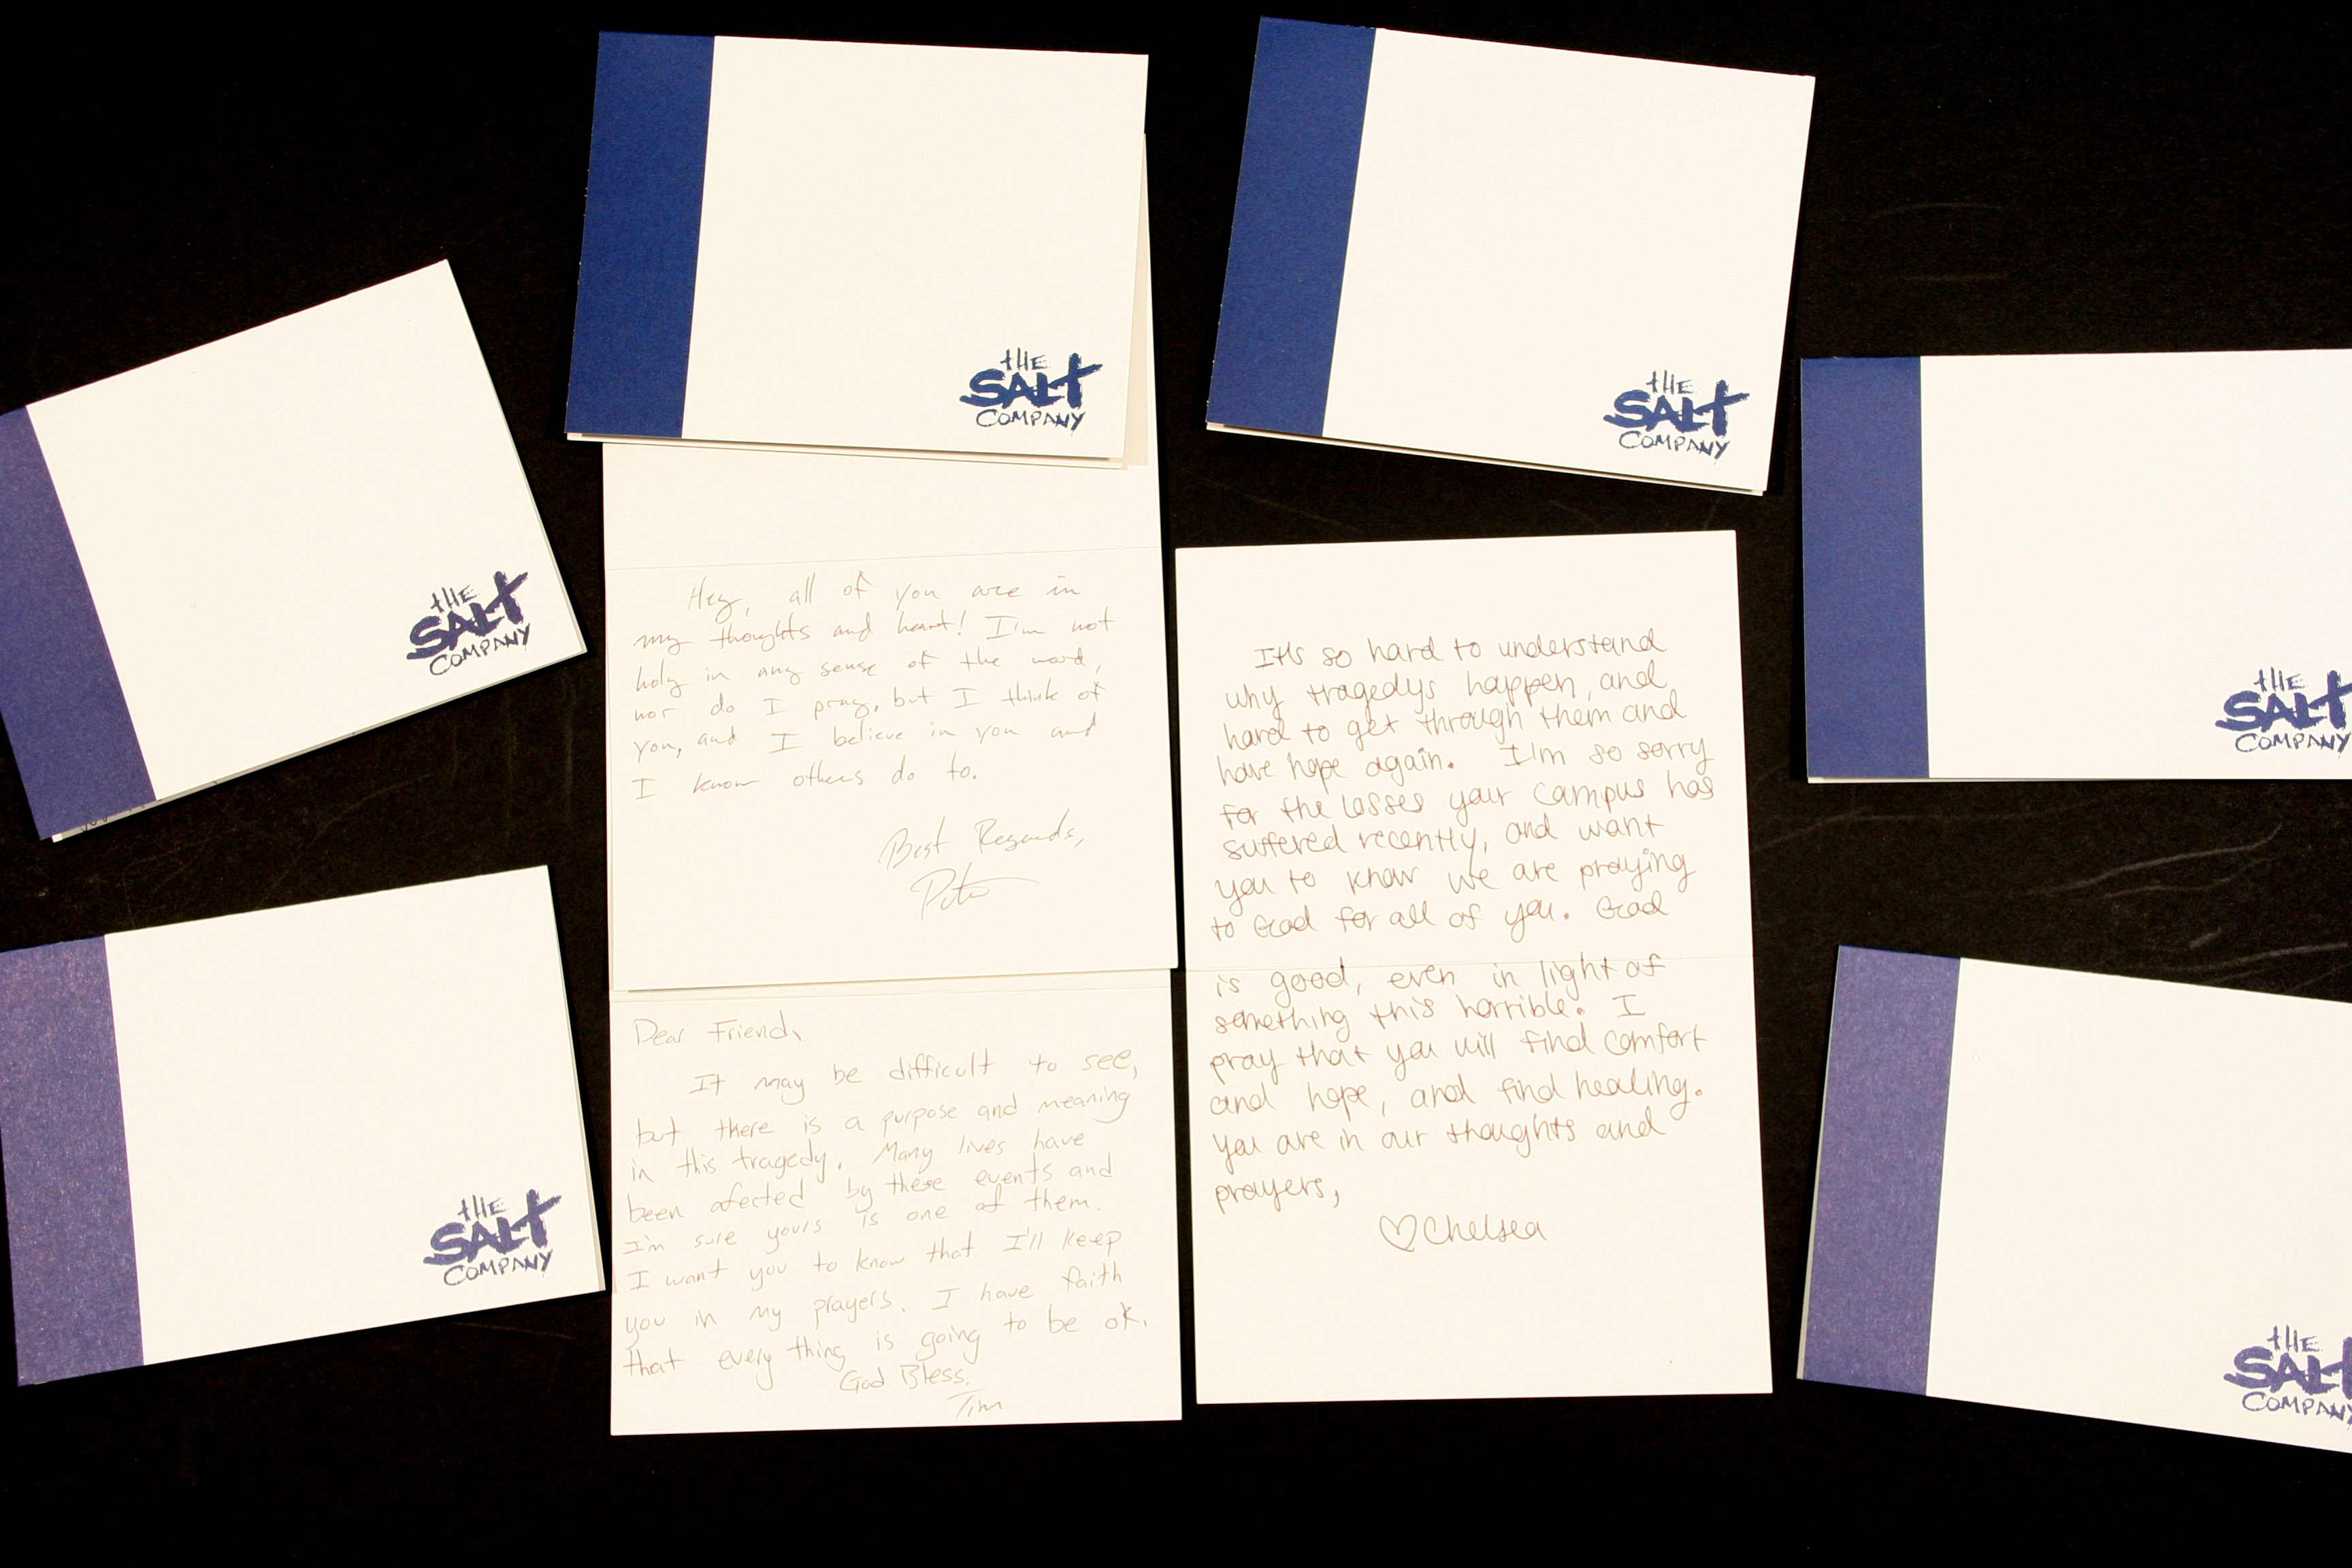 THE
SALT
COMPANY
THE
SALT
COMPANY
THE
SALT
COMPANY
THE
SALT
COMPANY
Hey, all of you are in
my thoughts and heart! I'm not
holy in any sense of the word,
nor do I pray, but I think of
you, and I believe in you and
I know others do to.
Best Regards,
It's so hard to understand
why tragedys happen, and
hard to get through them and
have hope again. I'm so sorry
for the losses your campus has
suffered recently, and want
you to know we are praying
to God for all of you. God
is good, even in light of
something this horrible. I
pray that you will find comfort
and hope, and find healing.
You are in our thoughts and
prayers,
♡Chelsea
Dear Friend,
It may be difficult to see,
but there is a purpose and meaning
in this tragedy. Many lives have
been afected by these events and
I'm sure yours is one of them.
I want you to know that I'll keep
you in my prayers. I have faith
that every thing is going to be ok.
God Bless.
Tim
THE
SALT
COMPANY
THE
SALT
COMPANY